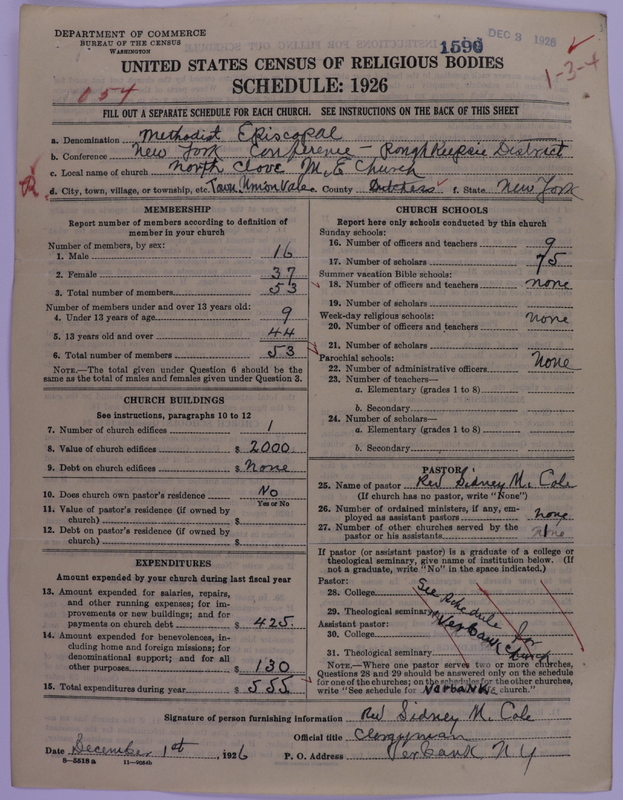 DEPARTMENT OF COMMERCE
BUREAU OF THE CENSUS
WASHINGTON
1590
DEC 3 1926
UNITED STATES CENSUS OF RELIGIOUS BODIES
SCHEDULE: 1926
1-3-4
054
FILL OUT A SEPARATE SCHEDULE FOR EACH CHURCH. SEE INSTRUCTIONS ON THE BACK OF THIS SHEET
a. Denomination Methodist Episcopal
b. Conference New York Conference - Poughkeepsie District
c. Local name of church North Clove M. E. Church
R. d. City, town, village, or township, etc. Town Union Vale e. County Dutchess f. State New York
MEMBERSHIP
Report number of members according to definition of
member in your church
Number of members, by sex:
1. Male 16
2. Female 37
3. Total number of members 53
Number of members under and over 13 years old:
4. Under 13 years of age 9
5. 13 years old and over 44
6. Total number of members 53
NOTE.—The total given under Question 6 should be
same as the total of males and females given under Question 3.
CHURCH BUILDINGS
See instructions, paragraphs 10 to 12
7. Number of church edifices 1
8. Value of church edifices $ 2000
9. Debt on church edifices $ None
10. Does church own pastor's residence No
Yes or No
11. Value of pastor's residence (if owned by
church) $
12. Debt on pastor's residence (if owned by
church) $
EXPENDITURES
Amount expended by your church during last fiscal year
13. Amount expended for salaries, repairs,
and other running expenses; for im-
provements or new buildings; and for
payments on church debt $ 425.
14. Amount expended for benevolences, in-
cluding home and foreign missions; for
denominational support; and for all
other purposes $ 130
15. Total expenditures during year $ 555
CHURCH SCHOOLS
Report here only schools conducted by this church
Sunday schools:
16. Number of officers and teachers 9
17. Number of scholars 75
Summer vacation Bible schools:
18. Number of officers and teachers none
19. Number of scholars
Week-day religious schools: none
20. Number of officers and teachers
21. Number of scholars
Parochial schools: None
22. Number of administrative officers
23. Number of teachers—
a. Elementary (grades 1 to 8)
b. Secondary
24. Number of scholars—
a. Elementary (grades 1 to 8)
b. Secondary
PASTOR
25. Name of pastor Rev Sidney M. Cole
(If church has no pastor, write "None")
26. Number of ordained ministers, if any, em-
ployed as assistant pastors none
27. Number of other churches served by the
pastor or his assistants 1
If pastor (or assistant pastor) is a graduate of a college or
theological seminary, give name of institution below. (If
not a graduate, write "No" in the space indicated.)
Pastor:
28. College See Schedule for
29. Theological seminary Verbank church
Assistant pastor:
30. College
31. Theological seminary
NOTE.—Where one pastor serves two or more churches,
Questions 28 and 29 should be answered only on the schedule
for one of the churches; on the schedules for the other churches,
write "See schedule for Verbank church."
Signature of person furnishing information Rev Sidney M. Cole
Official title Clergyman
Date December 1st, 1926 P. O. Address Verbank N Y
8-5518 a 11-9054b